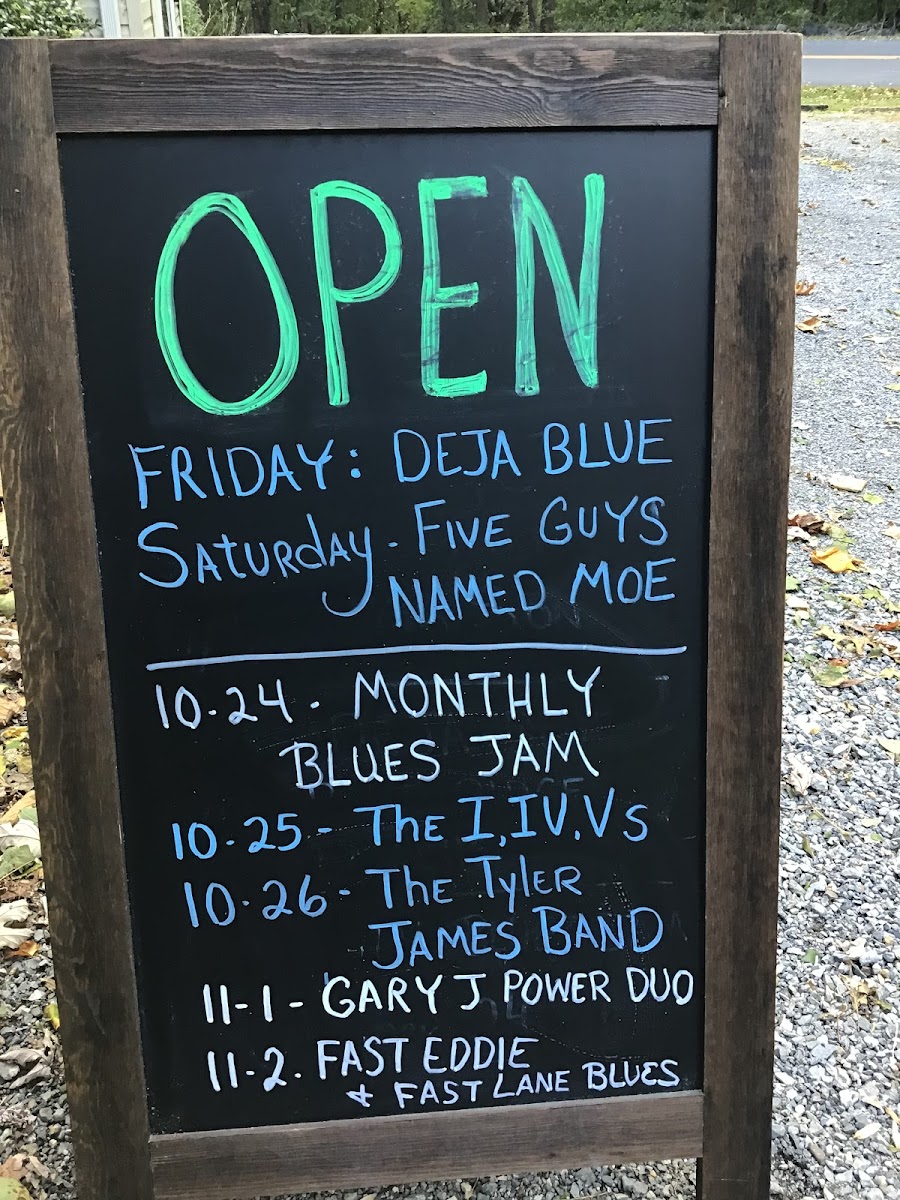 OPEN
FRIDAY: DEJA BLUE
SATURDAY - FIVE GUYS
NAMED MOE
10.24 - MONTHLY
BLUES JAM
10.25 - THE I, IV, Vs
10.26 - THE TYLER
JAMES BAND
11-1 - GARY J POWER DUO
11-2. FAST EDDIE
& FAST LANE BLUES